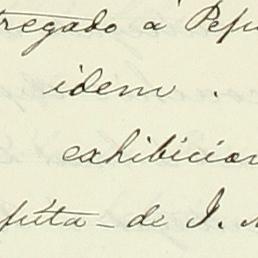 tregado á Pepi
idem .
exhibicion
fúta - de J. M